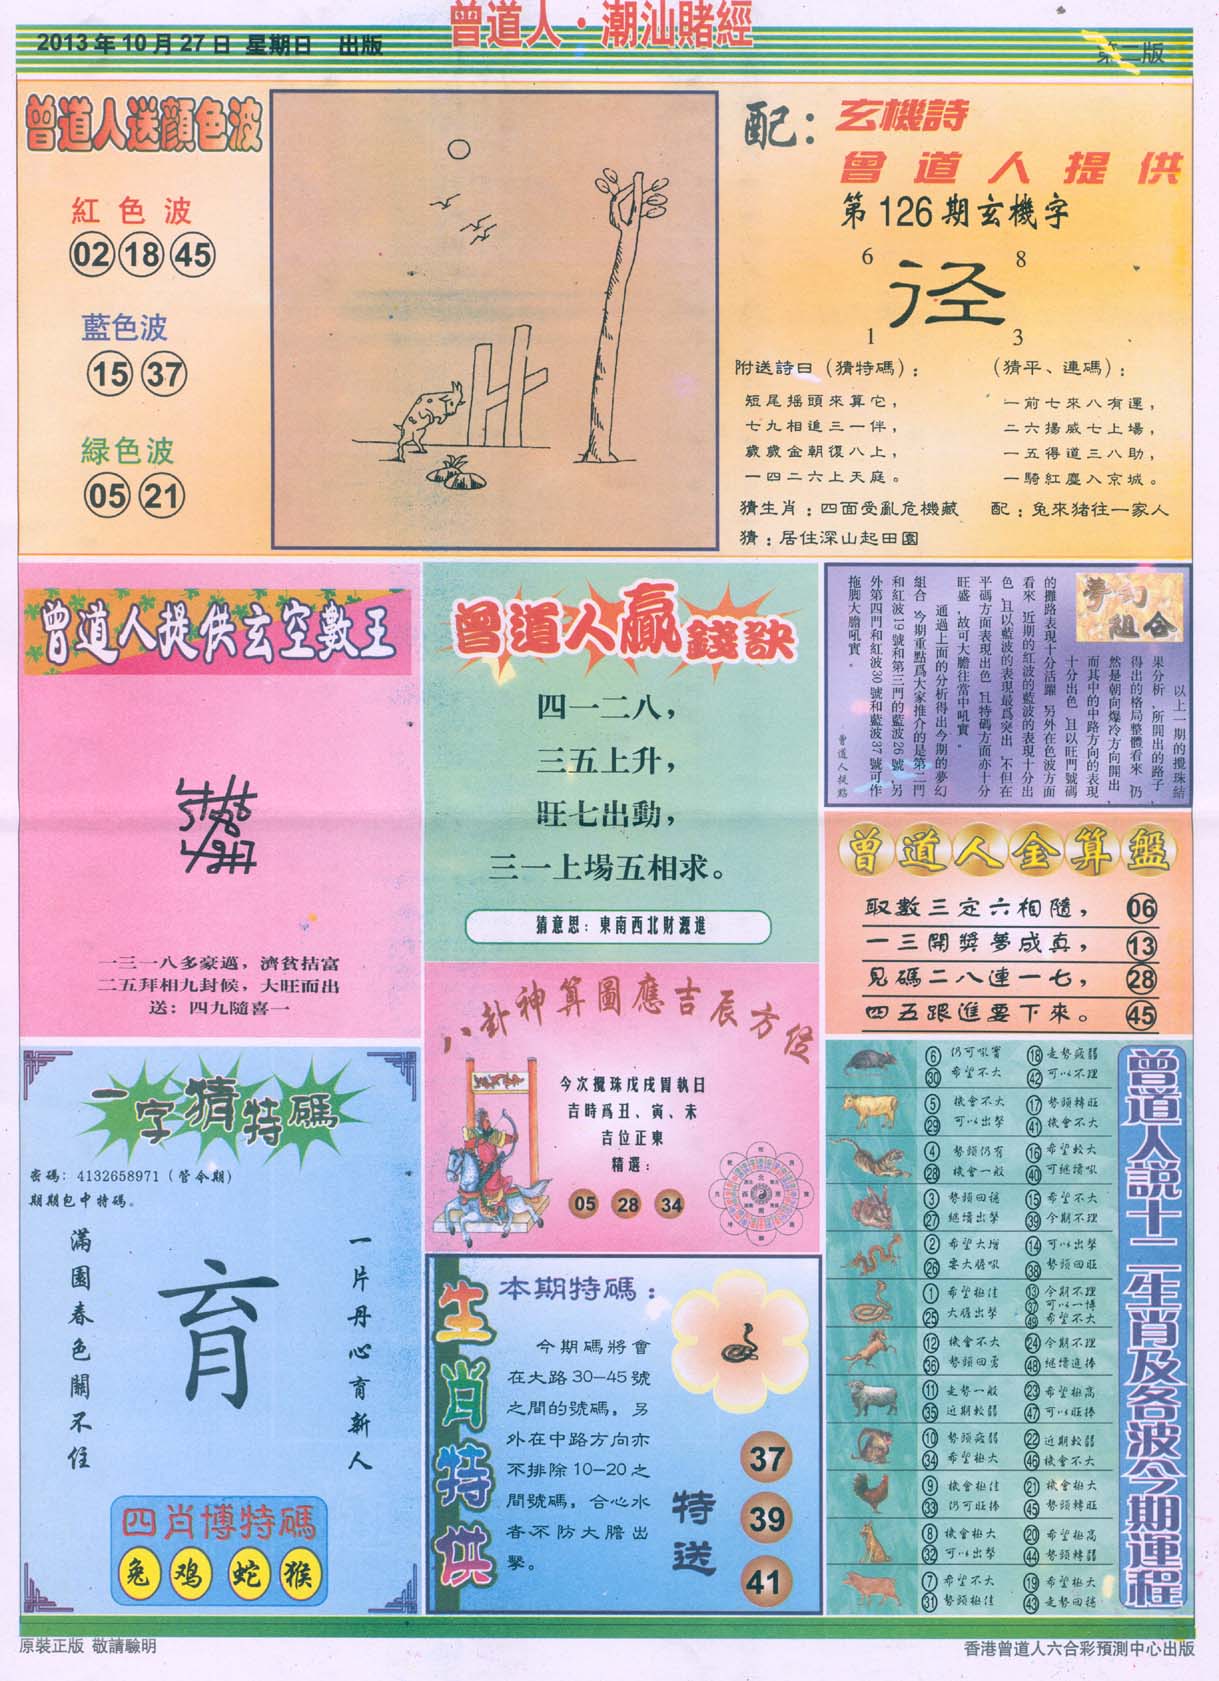 曾道人·潮汕賭經
2013年10月27日 星期日 出版
第二版
曾道人送顏色波
紅色波
02 18 45
藍色波
15 37
緑色波
05 21
配：
玄機詩
曾道人提供
第126期玄機字
6 8
径
1 3
附送詩曰（猜特碼）：
短尾摇頭來算它，
七九相追三一伴，
歲歲金朝復八上，
一四二六上天庭。
（猜平、連碼）：
一前七來八有運，
二六揚威七上場，
一五得道三八助，
一騎紅塵入京城。
猜生肖：四面受亂危機藏
配：兔來猪往一家人
猜：居住深山起田園
曾道人提供玄空數王
一三一八多豪邁，濟貧拮富
二五拜相九封候，大旺而出
送：四九隨喜一
曾道人贏錢訣
四一二八，
三五上升，
旺七出動，
三一上場五相求。
猜意思：東南西北財源進
夢幻
組合
以上一期的攪珠結
果分析﹐所開出的路子﹐
得出的格局整體看來﹐仍
然是朝向爆冷方向開出﹐
而其中的中路方向的表現
十分出色﹐且以旺門號碼
的攤路表現十分活躍﹐另外在色波方面
看來﹐近期的紅波的藍波的表現十分出
色﹐且以藍波的表現最爲突出﹐不但在
平碼方面表現出色﹐且特碼方面亦十分
旺盛﹐故可大膽往當中吼實。
通過上面的分析得出今期的夢幻
組合﹐今期重點爲大家推介的是第二門
和紅波19號和第三門的藍波26號﹐另
外第四門和紅波30號和藍波37號可作
拖脚大膽吼實。
曾道人提點
曾道人金算盤
取數三定六相隨， 06
一三開獎夢成真， 13
見碼二八連一七， 28
四五跟進要下來。 45
八卦神算圖應吉辰方位
今次攪珠戊戌周執日
吉時爲丑、寅、未
吉位正東
精選：
05 28 34
一字猜特碼
密碼：4132658971（管令期）
期期包中特碼。
一片丹心育新人
育
滿園春色關不住
四肖博特碼
兔 鸡 蛇 猴
生肖特供
本期特碼：
今期碼將會
在大路30－45號
之間的號碼，另
外在中路方向亦
不排除10－20之
間號碼，合心水
者不防大膽出
擊。
特送
37
39
41
曾道人説十二生肖及各波今期運程
6 仍可吼實 18 走勢疲弱
30 希望不大 42 可以不理
5 機會不大 17 勢頭轉旺
29 可以出擊 41 機會不大
4 勢頭仍有 16 希望較大
28 機會一般 40 可繼續吼
3 勢頭回穩 15 希望不大
27 繼續出擊 39 今期不理
2 希望大增 14 可以出擊
26 要大膽吼 38 勢頭回旺
1 希望極佳 13 今期不理
37 可以一博
25 大膽出擊 49 希望不大
12 機會不大 24 今期不理
36 勢頭回勇 48 繼續追捧
11 走勢一般 23 希望極高
35 近期較弱 47 可以旺捧
10 勢頭疲弱 22 近期較弱
34 希望極大 46 機會不大
9 機會極佳 21 機會極大
33 仍可旺捧 45 勢頭轉旺
8 機會極大 20 希望極高
32 可以出擊 44 勢頭轉弱
7 希望不大 19 希望極大
31 勢頭極佳 43 走勢回穩
原裝正版 敬請驗明
香港曾道人六合彩預測中心出版